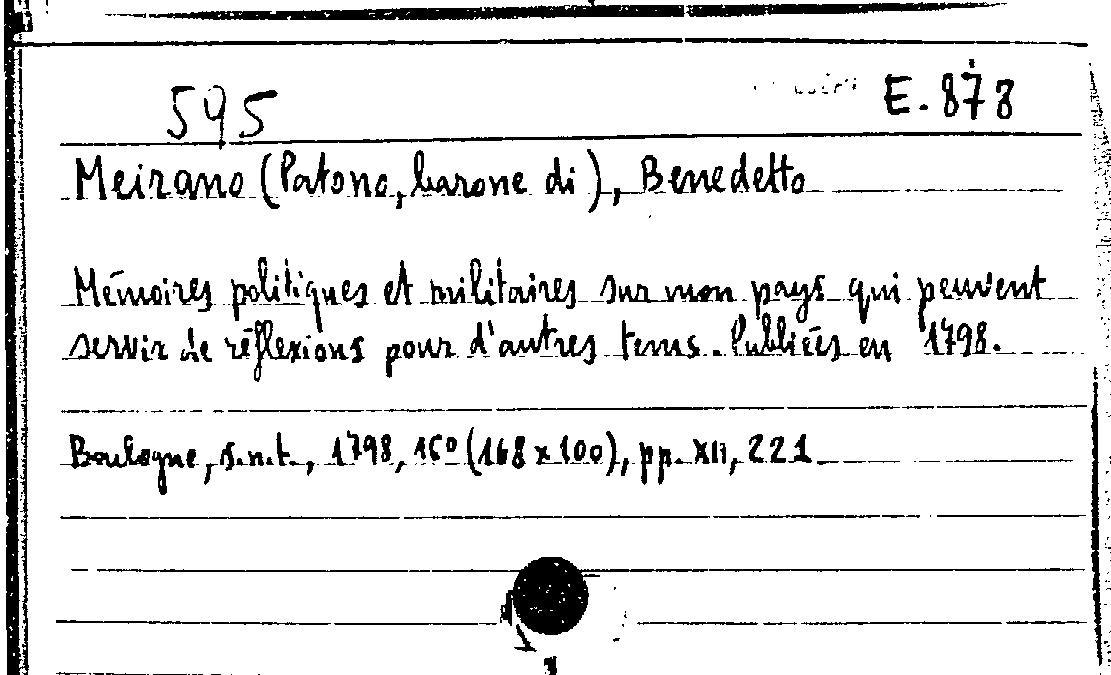 595 E. 878
Meirano (Patono, barone di), Benedetto
Mémoires politiques et militaires sur mon pays qui peuvent
servir de réflexions pour d'autres tems. Publiées en 1798.
Boulogne, s.n.t., 1798, 16º (168 x 100), pp. XII, 221